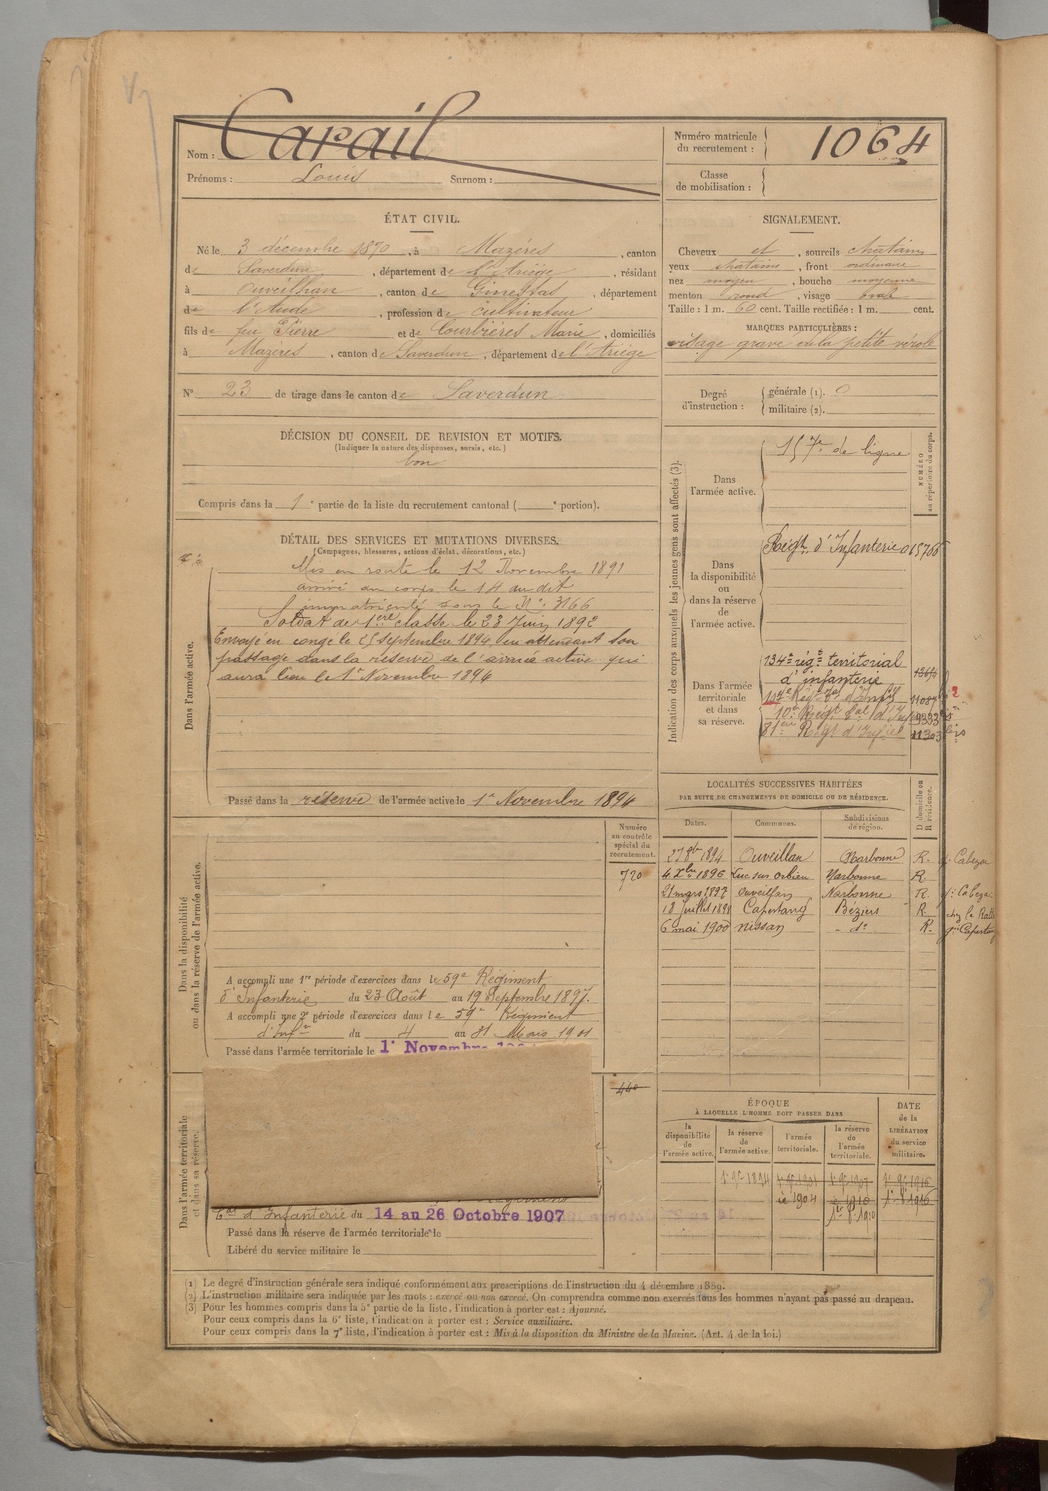 Nom : Carail
Prénoms : Louis Surnom :
Numéro matricule du recrutement : 1064
Classe de mobilisation :
ÉTAT CIVIL.
Né le 3 décembre 1870, à Mazéres, canton
de Saverdun, département de l'Ariége, résidant
à Ouveillan, canton de Ginestas, département
de l'Aude, profession de cultivateur
fils de feu Pierre et de Courbiéres Marie, domiciliés
à Mazéres, canton de Saverdun, département de l'Ariége
N° 23 de tirage dans le canton de Saverdun
SIGNALEMENT.
Cheveux et, sourcils chatains
yeux chatains, front ordinaire
nez moyen, bouche moyenne
menton rond, visage ovale
Taille : 1 m. 60 cent. Taille rectifiée : 1 m. cent.
MARQUES PARTICULIÈRES :
visage gravé de la petite vérole
Degré d'instruction : générale (1). 0
militaire (2).
DÉCISION DU CONSEIL DE REVISION ET MOTIFS.
(Indiquer la nature des dispenses, sursis, etc.)
bon
Compris dans la 1e partie de la liste du recrutement cantonal ( e portion).
DÉTAIL DES SERVICES ET MUTATIONS DIVERSES.
(Campagnes, blessures, actions d'éclat, décorations, etc.)
Dans l'armée active.
Mis en route le 12 Novembre 1891
arrivé au corps le 14 du dit
immatriculé sous le N° 3166
Soldat de 1ere classe le 23 Juin 1892
Envoyé en congé le 25 septembre 1894, en attendant son
passage dans la réserve de l'armée active qui
aura lieu le 1r Novembre 1894
Passé dans la réserve de l'armée active le 1r Novembre 1894
Indication des corps auxquels les jeunes gens sont affectés (3).
NUMÉRO au répertoire du corps.
Dans l'armée active.
157e de ligne
Dans la disponibilité ou dans la réserve de l'armée active.
Régt d'Infanterie 015706
Dans l'armée territoriale et dans sa réserve.
134e régt territorial
d'infanterie
81eme Régt d'Infie 11303 bis
LOCALITÉS SUCCESSIVES HABITÉES
PAR SUITE DE CHANGEMENTS DE DOMICILE OU DE RÉSIDENCE.
Dates. Communes. Subdivisions de région. D domicile ou R résidence.
27 8bre 1894 Ouveillan Narbonne R.
4 Xbre 1896 Luc sur Orbieu Narbonne R
21 mars 1897 Ouveillan Narbonne R
18 juillet 1898 Capestang Béziers R
6 mai 1900 Nissan - do R.
Dans la disponibilité ou dans la réserve de l'armée active.
Numéro au contrôle spécial du recrutement.
720
A accompli une 1re période d'exercices dans le 59e Régiment
d'Infanterie du 23 Août au 19 Septembre 1897.
A accompli une 2e période d'exercices dans le 59e Régiment
d'Infie du 4 au 31 Mars 1901
Passé dans l'armée territoriale le 1r Novembre
Dans l'armée territoriale et dans sa réserve.
440
d'Infanterie du 14 au 26 Octobre 1907
Passé dans la réserve de l'armée territoriale le
Libéré du service militaire le
ÉPOQUE
À LAQUELLE L'HOMME DOIT PASSER DANS
DATE de la LIBÉRATION du service militaire.
la disponibilité de l'armée active.
la réserve de l'armée active.
l'armée territoriale.
la réserve de l'armée territoriale.
1r 9bre 1894
(1) Le degré d'instruction générale sera indiqué conformément aux prescriptions de l'instruction du 4 décembre 1889.
(2) L'instruction militaire sera indiquée par les mots : exercé ou non exercé. On comprendra comme non exercés tous les hommes n'ayant pas passé au drapeau.
(3) Pour les hommes compris dans la 5e partie de la liste, l'indication à porter est : Ajourné.
Pour ceux compris dans la 6e liste, l'indication à porter est : Service auxiliaire.
Pour ceux compris dans la 7e liste, l'indication à porter est : Mis à la disposition du Ministre de la Marine. (Art. 4 de la loi.)